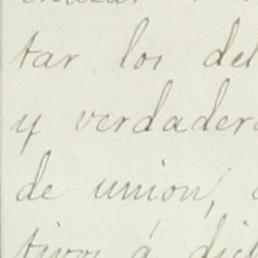 tar los del
y verdader
de union,
tivos á dich